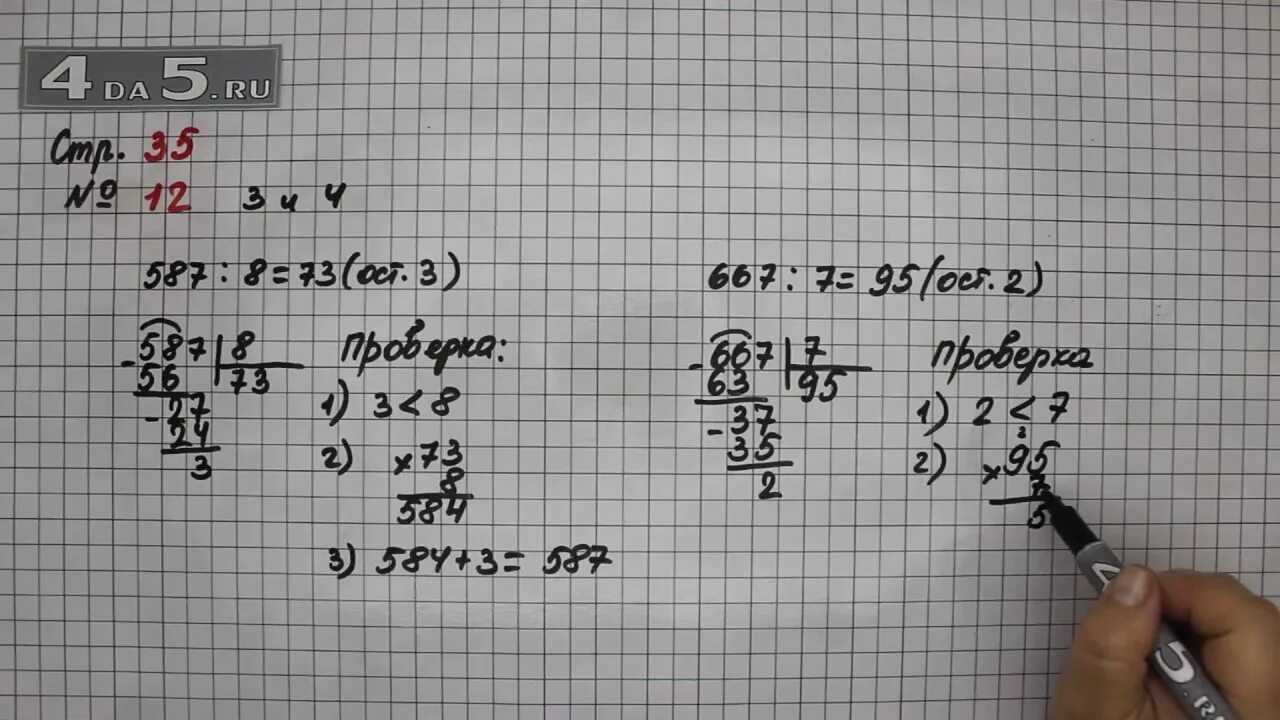 4DA5.RU
Стр. 35
№ 12 3 и 4
587 : 8 = 73 (ост. 3)
587 8
- 56 73
- 27
24
3
Проверка:
1) 3 < 8
2) × 73
8
584
3) 584 + 3 = 587
667 : 7 = 95 (ост. 2)
- 667 7
63 95
- 37
35
2
Проверка
1) 2 < 7
3
2) × 95
7
5
5.RU